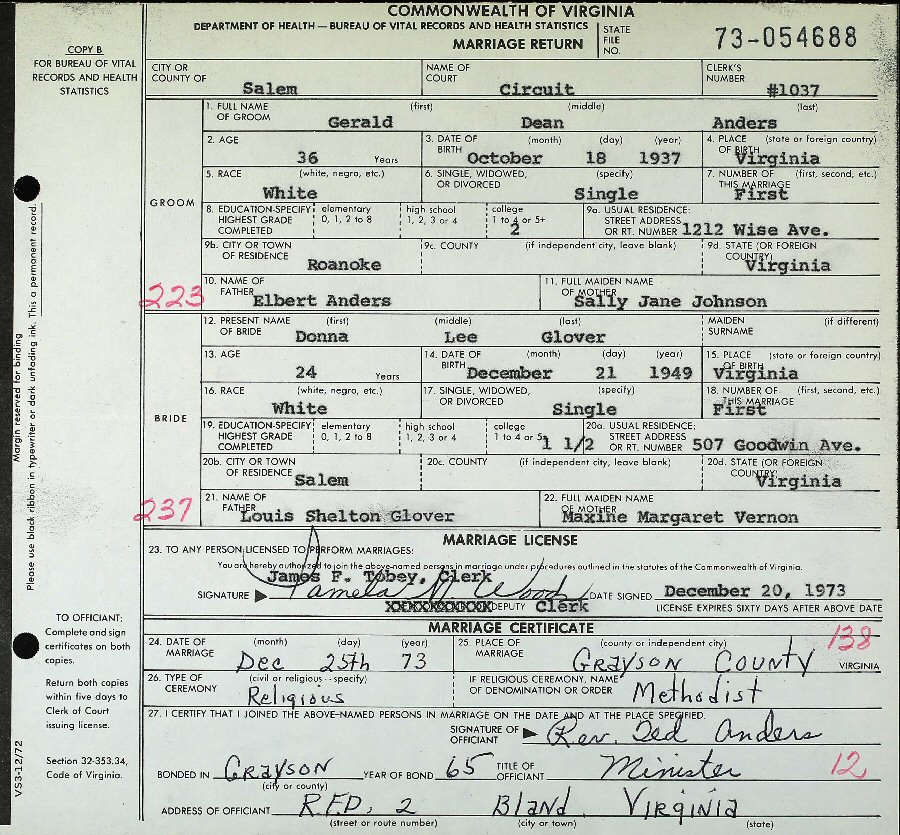 COMMONWEALTH OF VIRGINIA
DEPARTMENT OF HEALTH — BUREAU OF VITAL RECORDS AND HEALTH STATISTICS
MARRIAGE RETURN
STATE FILE NO. 73-054688
COPY B
FOR BUREAU OF VITAL
RECORDS AND HEALTH
STATISTICS
CITY OR COUNTY OF Salem
NAME OF COURT Circuit
CLERK'S NUMBER #1037
GROOM
1. FULL NAME OF GROOM (first) Gerald (middle) Dean (last) Anders
2. AGE 36 Years
3. DATE OF BIRTH (month) October (day) 18 (year) 1937
4. PLACE OF BIRTH (state or foreign country) Virginia
5. RACE (white, negro, etc.) White
6. SINGLE, WIDOWED, OR DIVORCED (specify) Single
7. NUMBER OF THIS MARRIAGE (first, second, etc.) First
8. EDUCATION-SPECIFY HIGHEST GRADE COMPLETED elementary 0, 1, 2 to 8 high school 1, 2, 3 or 4 college 1 to 4 or 5+ 2
9a. USUAL RESIDENCE: STREET ADDRESS OR RT. NUMBER 1212 Wise Ave.
9b. CITY OR TOWN OF RESIDENCE Roanoke
9c. COUNTY (if independent city, leave blank)
9d. STATE (OR FOREIGN COUNTRY) Virginia
223
10. NAME OF FATHER Elbert Anders
11. FULL MAIDEN NAME OF MOTHER Sally Jane Johnson
BRIDE
12. PRESENT NAME OF BRIDE (first) Donna (middle) Lee (last) Glover
MAIDEN SURNAME (if different)
13. AGE 24 Years
14. DATE OF BIRTH (month) December (day) 21 (year) 1949
15. PLACE OF BIRTH (state or foreign country) Virginia
16. RACE (white, negro, etc.) White
17. SINGLE, WIDOWED, OR DIVORCED (specify) Single
18. NUMBER OF THIS MARRIAGE (first, second, etc.) First
19. EDUCATION-SPECIFY HIGHEST GRADE COMPLETED elementary 0, 1, 2 to 8 high school 1, 2, 3 or 4 college 1 to 4 or 5+ 1 1/2
20a. USUAL RESIDENCE: STREET ADDRESS OR RT. NUMBER 507 Goodwin Ave.
20b. CITY OR TOWN OF RESIDENCE Salem
20c. COUNTY (if independent city, leave blank)
20d. STATE (OR FOREIGN COUNTRY) Virginia
237
21. NAME OF FATHER Louis Shelton Glover
22. FULL MAIDEN NAME OF MOTHER Maxine Margaret Vernon
MARRIAGE LICENSE
23. TO ANY PERSON LICENSED TO PERFORM MARRIAGES:
You are hereby authorized to join the above-named persons in marriage under procedures outlined in the statutes of the Commonwealth of Virginia.
James F. Tobey, Clerk
SIGNATURE Pamela M Wood DATE SIGNED December 20, 1973
XXXXXXXXXXX DEPUTY Clerk LICENSE EXPIRES SIXTY DAYS AFTER ABOVE DATE
MARRIAGE CERTIFICATE
24. DATE OF MARRIAGE (month) Dec (day) 25th (year) 73
25. PLACE OF MARRIAGE (county or independent city) Grayson County VIRGINIA
138
26. TYPE OF CEREMONY (civil or religious - specify) Religious
IF RELIGIOUS CEREMONY, NAME OF DENOMINATION OR ORDER Methodist
27. I CERTIFY THAT I JOINED THE ABOVE-NAMED PERSONS IN MARRIAGE ON THE DATE AND AT THE PLACE SPECIFIED.
SIGNATURE OF OFFICIANT Rev. Ted Anders
BONDED IN Grayson (city or county) YEAR OF BOND 65 TITLE OF OFFICIANT Minister
12
ADDRESS OF OFFICIANT R.F.D. 2 (street or route number) Bland (city or town) Virginia (state)
Margin reserved for binding
Please use black ribbon in typewriter or dark unfading ink. This a permanent record.
TO OFFICIANT:
Complete and sign
certificates on both
copies.
Return both copies
within five days to
Clerk of Court
issuing license.
Section 32-353.34,
Code of Virginia.
VS3-12/72